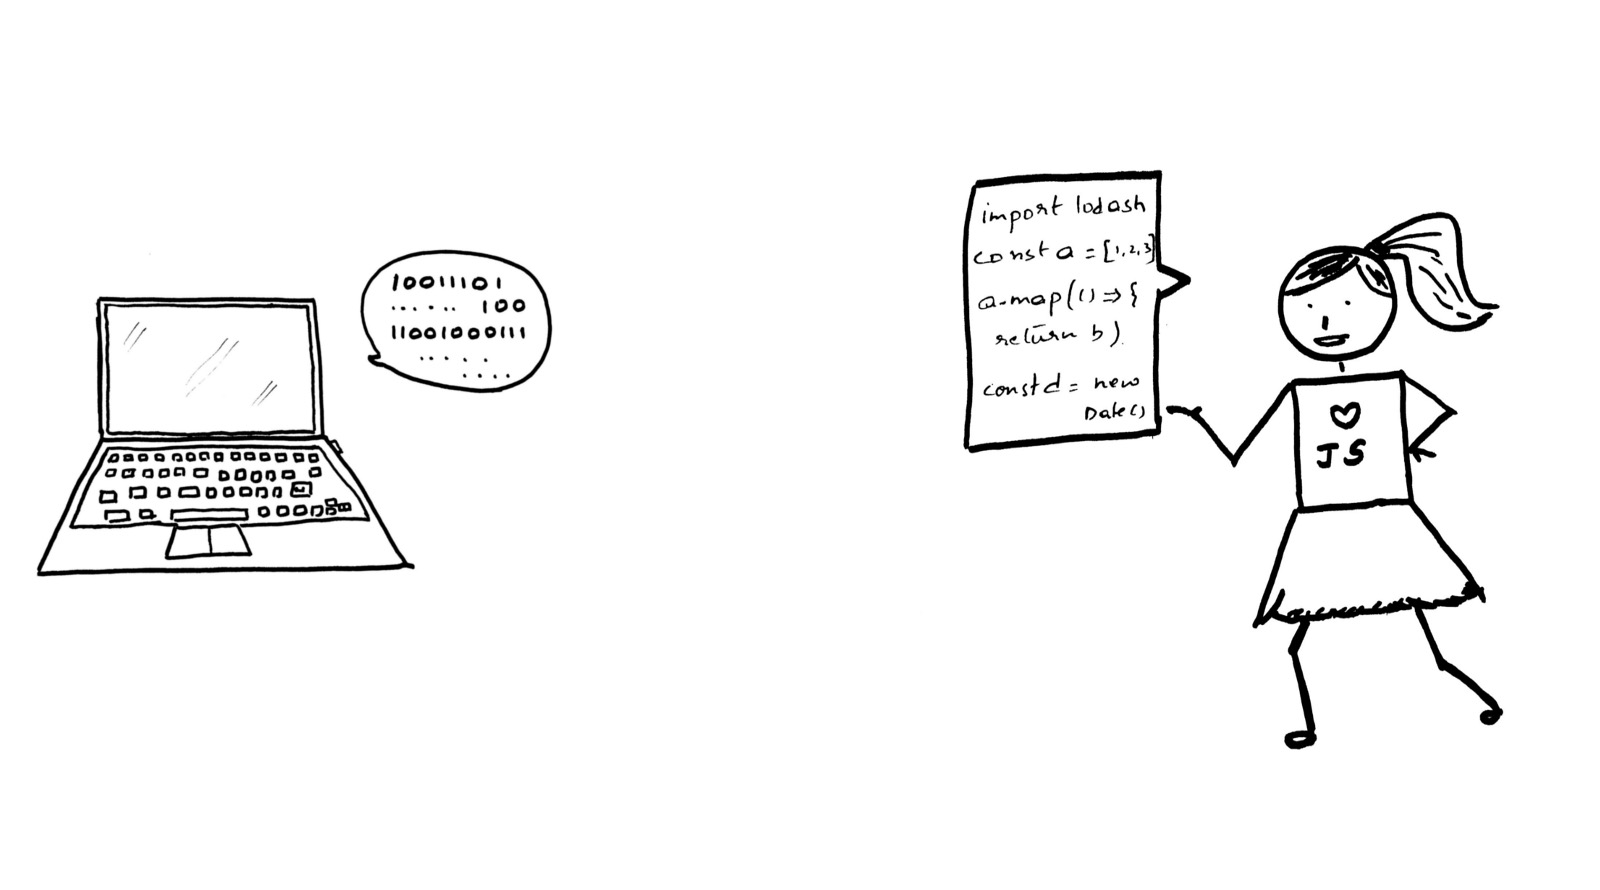 10011101
..... 100
11001000111
.....
....
import lodash
const a = [1,2,3]
a.map(() => {
return b)
const d = new
Date()
♡
JS